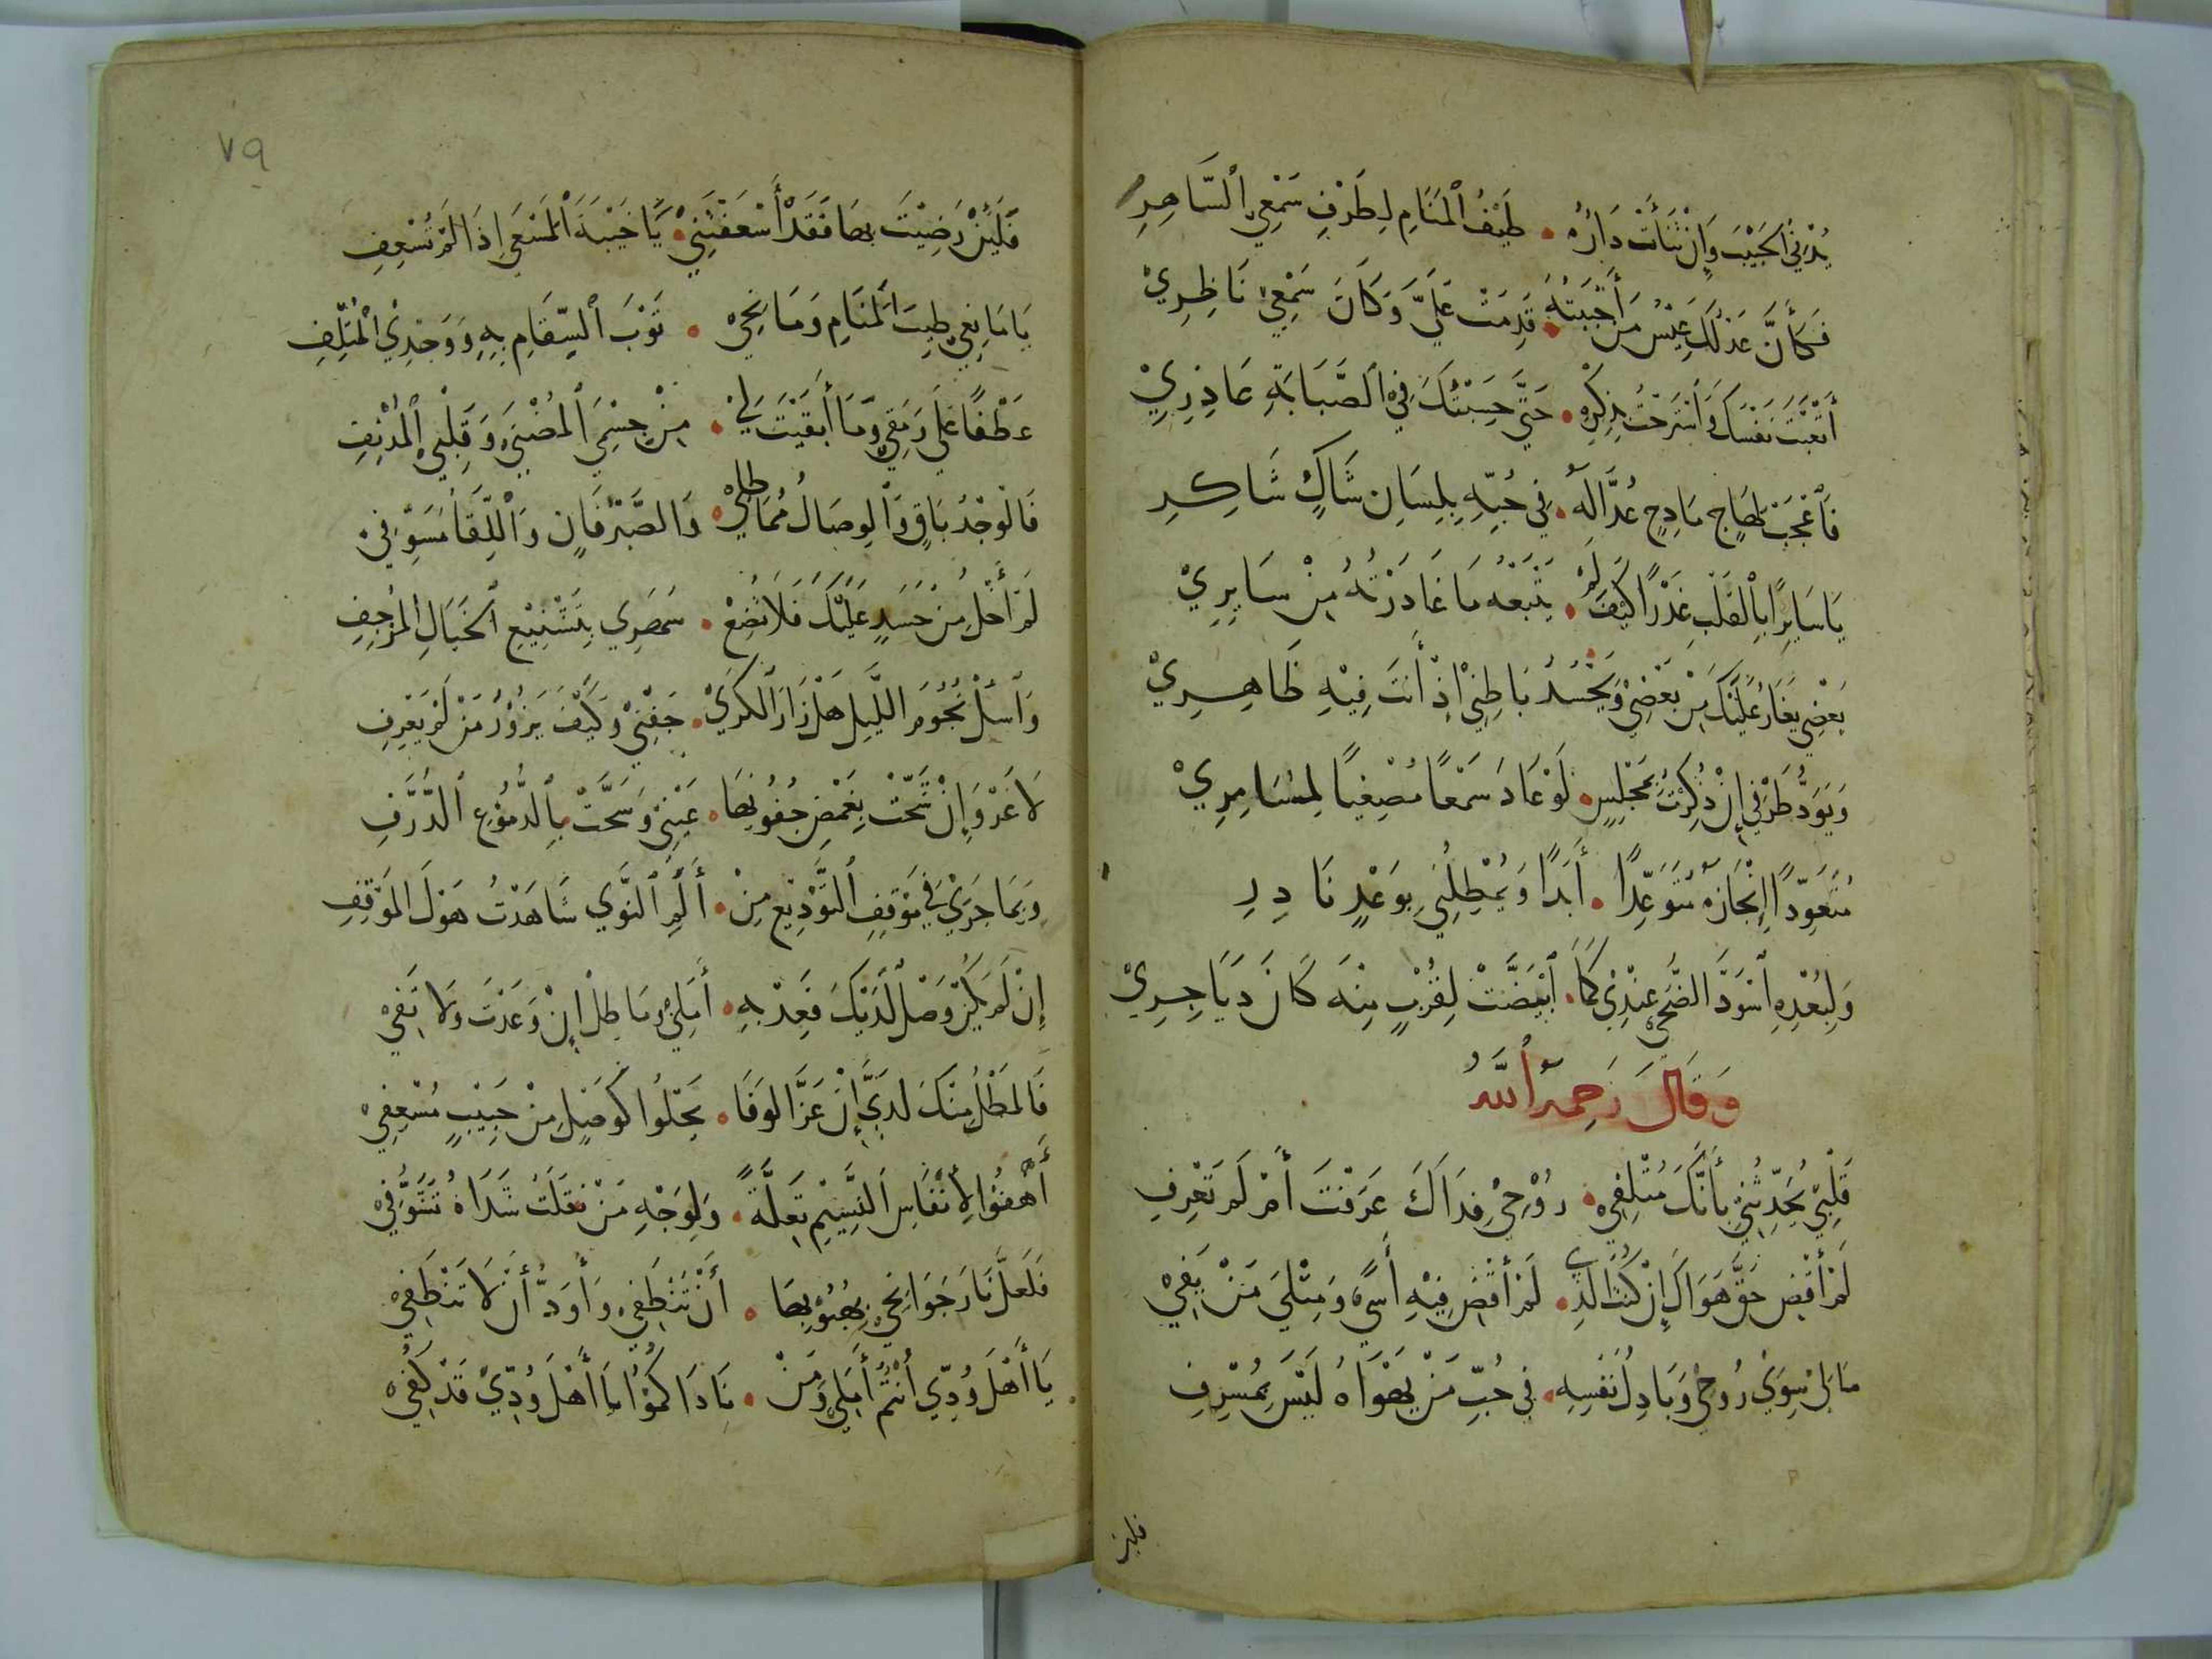 يُدْنِي الْحَبِيْبَ وَإِنْ تَنَأَتْ دَارُهُ • طَيْفُ الْمَنَامِ لِطَرْفِ سَمْعِي السَّاهِرِ
فَكَأَنَّ عَذْلَكَ عِيْسُ مَنْ أَحْبَبْتُهُ • قَدِمَتْ عَلَيَّ وَكَانَ سَمْعِيْ نَاظِرِيْ
أَتْعَبْتَ نَفْسَكَ وَاسْتَرَحْتُ بِذِكْرِهِ • حَتَّى حَسِبْتُكَ فِي الصَّبَابَةِ عَاذِرِيْ
فَاعْجَبْ لِهَاجٍ مَادِحٍ عُذَّالَهُ • فِي حُبِّهِ بِلِسَانِ شَاكٍ شَاكِرِ
يَا سَايِرًا بِالْقَلْبِ غَدْرًا كَيْفَ لَمْ • يَتْبَعْهُ مَا غَادَرْتُهُ مِنْ سَايِرِيْ
بَعْضِي يَغَارُ عَلَيْكَ مِنْ بَعْضِيْ وَيَحْسُدُ بَاطِنِيْ إِذْ أَنْتَ فِيْهِ ظَاهِرِيْ
وَيَوَدُّ طَرْفِي إِنْ ذُكِرْتَ بِمَجْلِسٍ • لَوْ عَادَ سَمْعًا مُصْغِيًا لِمُسَامِرِيْ
مُتَعَوِّدًا إِنْجَازَهُ مُتَوَعِّدًا • أَبَدًا وَيُمْطِلُنِي بِوَعْدٍ نَادِرِ
وَلِبُعْدِهِ اسْوَدَّ الضُّحَى عِنْدِيْ كَمَا • ابْيَضَّتْ لِقُرْبٍ مِنْهُ كَانَ دَيَاجِرِيْ
وَقَالَ رَحِمَهُ اللّٰهُ
قَلْبِيْ يُحَدِّثُنِيْ بِأَنَّكَ مُتْلِفِيْ • رُوْحِيْ فِدَاكَ عَرَفْتَ أَمْ لَمْ تَعْرِفِ
لَمْ أَقْضِ حَقَّ هَوَاكَ إِنْ كُنْتُ الَّذِي • لَمْ أَقْضِ فِيْهِ أَسًى وَمِثْلِيَ مَنْ يَفِيْ
مَا لِيْ سِوَى رُوحِيْ وَبَاذِلُ نَفْسِهِ • فِي حُبِّ مَنْ يَهْوَاهُ لَيْسَ بِمُسْرِفِ
فلئن
٧٩
فَلَئِنْ رَضِيْتَ بِهَا فَقَدْ أَسْعَفْتَنِيْ • يَا خَيْبَةَ الْمَسْعَى إِذَا لَمْ تُسْعِفِ
يَا مَانِعِي طِيْبَ الْمَنَامِ وَمَانِحِيْ • ثَوْبَ السِّقَامِ بِهِ وَوَجْدِي الْمُتْلِفِ
عَطْفًا عَلَى رَمَقِيْ وَمَا أَبْقَيْتَ لِيْ • مِنْ جِسْمِيَ الْمُضْنَى وَقَلْبِي الْمُدْنِفِ
فَالْوَجْدُ بَاقٍ وَالْوِصَالُ مُمَاطِلِيْ • وَالصَّبْرُ فَانٍ وَاللِّقَا مُسَوِّفِيْ
لَمْ أَخْلُ مِنْ حَسَدٍ عَلَيْكَ فَلَا تُضِعْ • سَهَرِي بِتَشْنِيْعِ الْخَيَالِ الْمُرْجِفِ
وَاسْئَلْ نُجُوْمَ اللَّيْلِ هَلْ زَارَ الْكَرَى • جَفْنِيْ وَكَيْفَ يَزُوْرُ مَنْ لَمْ يَعْرِفِ
لَا غَرْوَ إِنْ شَحَّتْ بِغَمْضِ جُفُوْنِهَا • عَيْنِيْ وَسَحَّتْ بِالدُّمُوْعِ الذُّرَّفِ
وَبِمَا جَرَى فِي مَوْقِفِ التَّوْدِيْعِ مِنْ • أَلَمِ النَّوَى شَاهَدْتُ هَوْلَ الْمَوْقِفِ
إِنْ لَمْ يَكُنْ وَصْلٌ لَدَيْكَ فَعِدْ بِهِ • أَمَلِيْ وَمَاطِلْ إِنْ وَعَدْتَ وَلَا تَفِيْ
فَالْمَطْلُ مِنْكَ لَدَيَّ إِنْ عَزَّ الْوَفَا • يَحْلُوا كَوَصْلٍ مِنْ حَبِيْبٍ مُسْعِفِيْ
أَهْفُوا لِأَنْفَاسِ النَّسِيْمِ تَعِلَّةً • وَلِوَجْهِ مَنْ نَقَلَتْ شَذَاهُ تَشَوُّفِيْ
فَلَعَلَّ نَارَ جَوَانِحِيْ بِهُبُوْبِهَا • أَنْ تَنْطَفِيْ وَأَوَدُّ أَنْ لَا تَنْطَفِيْ
يَا أَهْلَ وُدِّي أَنْتُمُ أَمَلِيْ وَمَنْ • نَادَاكُمُوْ يَا أَهْلَ وُدِّيْ قَدْ كُفِيْ